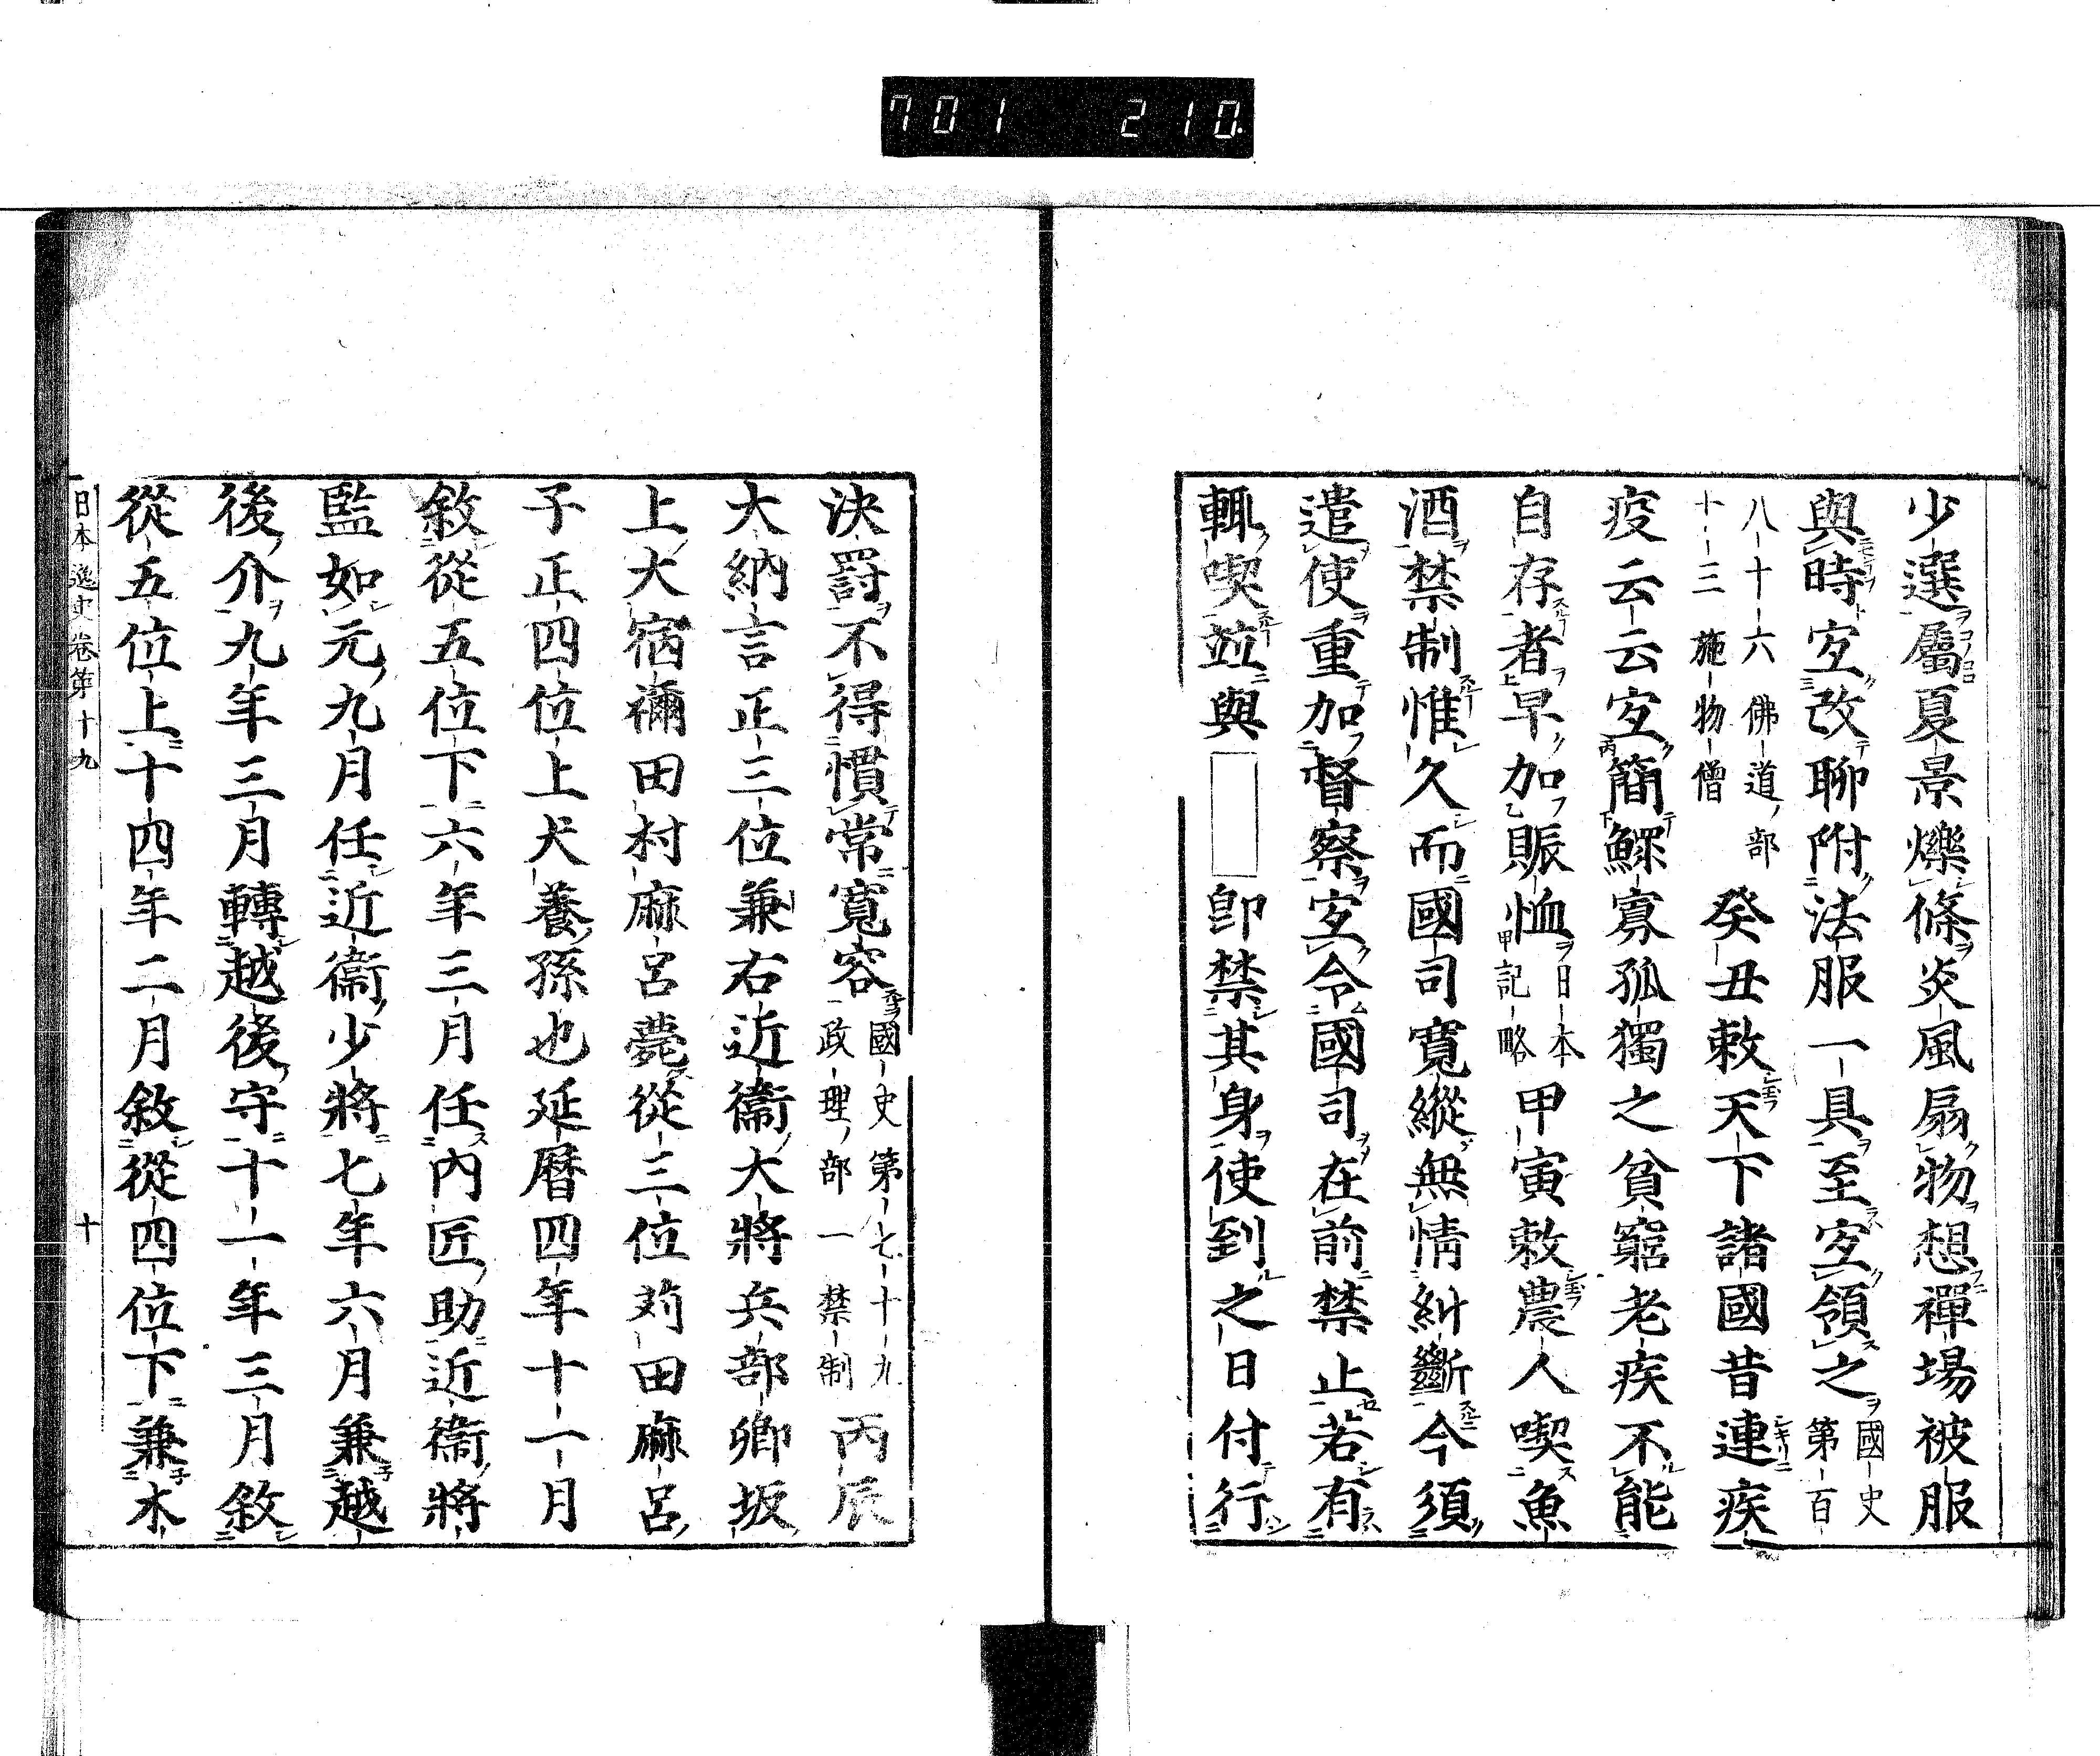 701 210
少選屬夏景爍條炎風扇物想禪場被服
與時宜改聊附法服一具至宜領之國史第百
八十六佛道部
十三施物僧
癸丑敕天下諸國昔連疾
疫云云宜簡鰥寡孤獨之貧窮老疾不能
自存者早加賑恤日本記略甲寅敕農人喫魚
酒禁制惟久而國司寬縱無情糾斷今須
遣使重加督察宜令國司在前禁止若有
輒喫竝與 卽禁其身使到之日付行
決罸不得慣常寬容國史第七十九政理部一禁制丙辰
大納言正三位兼右近衞大將兵部卿坂
上大宿禰田村麻呂薨從三位苅田麻呂
子正四位上犬養孫也延曆四年十一月
敘從五位下六年三月任內匠助近衞將
監如元九月任近衞少將七年六月兼越
後介九年三月轉越後守十一年三月敘
從五位上十四年二月敘從四位下兼木
日本逸史卷第十九 十